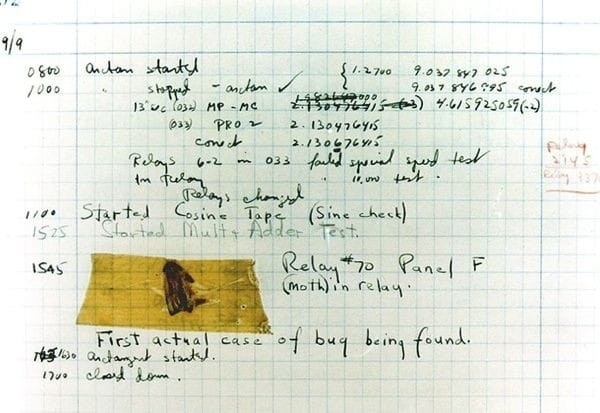 9/9
0800 Arctan started { 1.2700 9.037 847 025
1000 " stopped - arctan ✓ 9.037 846 995 correct
13"uc (032) MP - MC 2.130476415 (-3) 4.615925059(-2)
(033) PRO 2 2.130476415
correct 2.130676415
Relays 6-2 in 033 failed special speed test
In Relay " 10,000 test .
Relays changed
Relay
2145
Relay 337
1100 Started Cosine Tape (Sine check)
1525 Started Mult + Adder Test.
1545 Relay #70 Panel F
(moth) in relay.
First actual case of bug being found.
1630 Arctangent started.
1700 closed down.